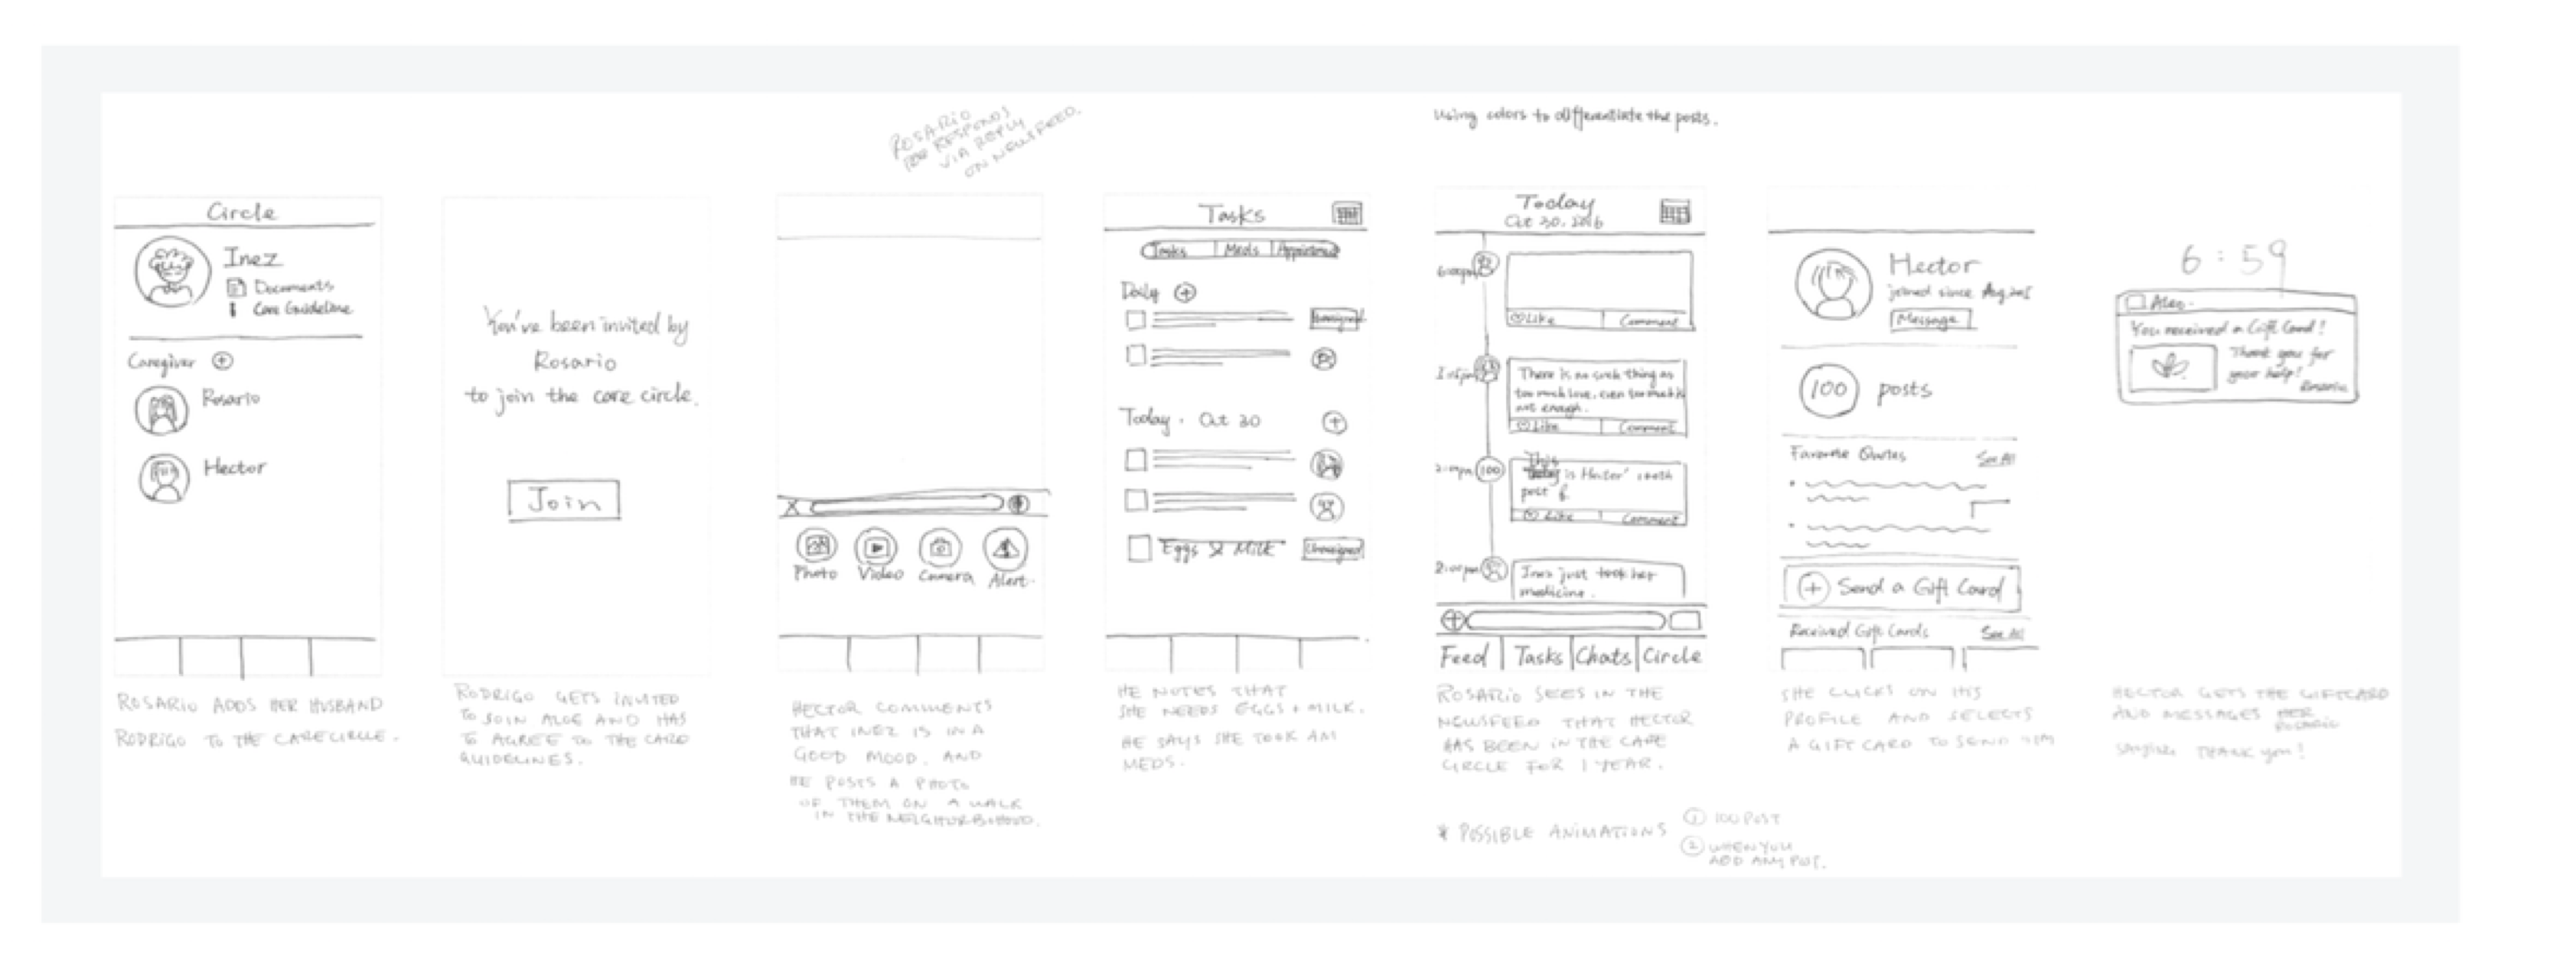 ROSARIO
RESPONDS
VIA REPLY
ON NEWSFEED.
Using colors to differentiate the posts.
Circle
Inez
Documents
Care Guideline
Caregiver
Rosario
Hector
ROSARIO ADDS HER HUSBAND
RODRIGO TO THE CARECIRCLE.
You've been invited by
Rosario
to join the care circle.
Join
RODRIGO GETS INVITED
TO JOIN ALOE AND HAS
TO AGREE TO THE CARE
GUIDELINES.
X
Photo Video Camera Alert.
HECTOR COMMENTS
THAT INEZ IS IN A
GOOD MOOD. AND
HE POSTS A PHOTO
OF THEM ON A WALK
IN THE NEIGHBORHOOD.
Tasks
Tasks Meds
Daily
Unassigned
Today. Oct 30
Eggs & Milk Unassigned
HE NOTES THAT
SHE NEEDS EGGS + MILK.
HE SAYS SHE TOOK AM
MEDS.
Today
Oct 30, 2016
6:00pm
Like Comment
There is no such thing as
too much love, even too much is
not enough.
Like Comment
This
100 is Hector' 100th
post
Like Comment
2:00pm
Inez just took her
medicine.
Feed Tasks Chats Circle
ROSARIO SEES IN THE
NEWSFEED THAT HECTOR
HAS BEEN IN THE CARE
CIRCLE FOR 1 YEAR.
* POSSIBLE ANIMATIONS
1 100 POST
2 WHEN YOU
ADD ANY POST.
Hector
joined since
Message
100 posts
Favorite Quotes See All
+ Send a Gift Card
Received Gift Cards See All
SHE CLICKS ON HIS
PROFILE AND SELECTS
A GIFT CARD TO SEND HIM
6:59
You received a Gift Card!
Thank you for
your help!
Rosario
HECTOR GETS THE GIFTCARD
AND MESSAGES HER
ROSARIO
SAYING THANK YOU!